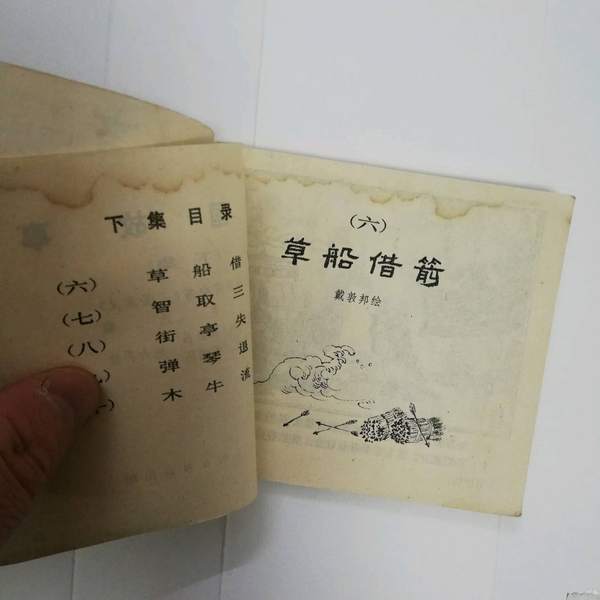 下集目录
（六） 草船借
（七） 智取三
（八） 街亭失
弹琴退
木牛流
（六）
草船借箭
戴敦邦绘